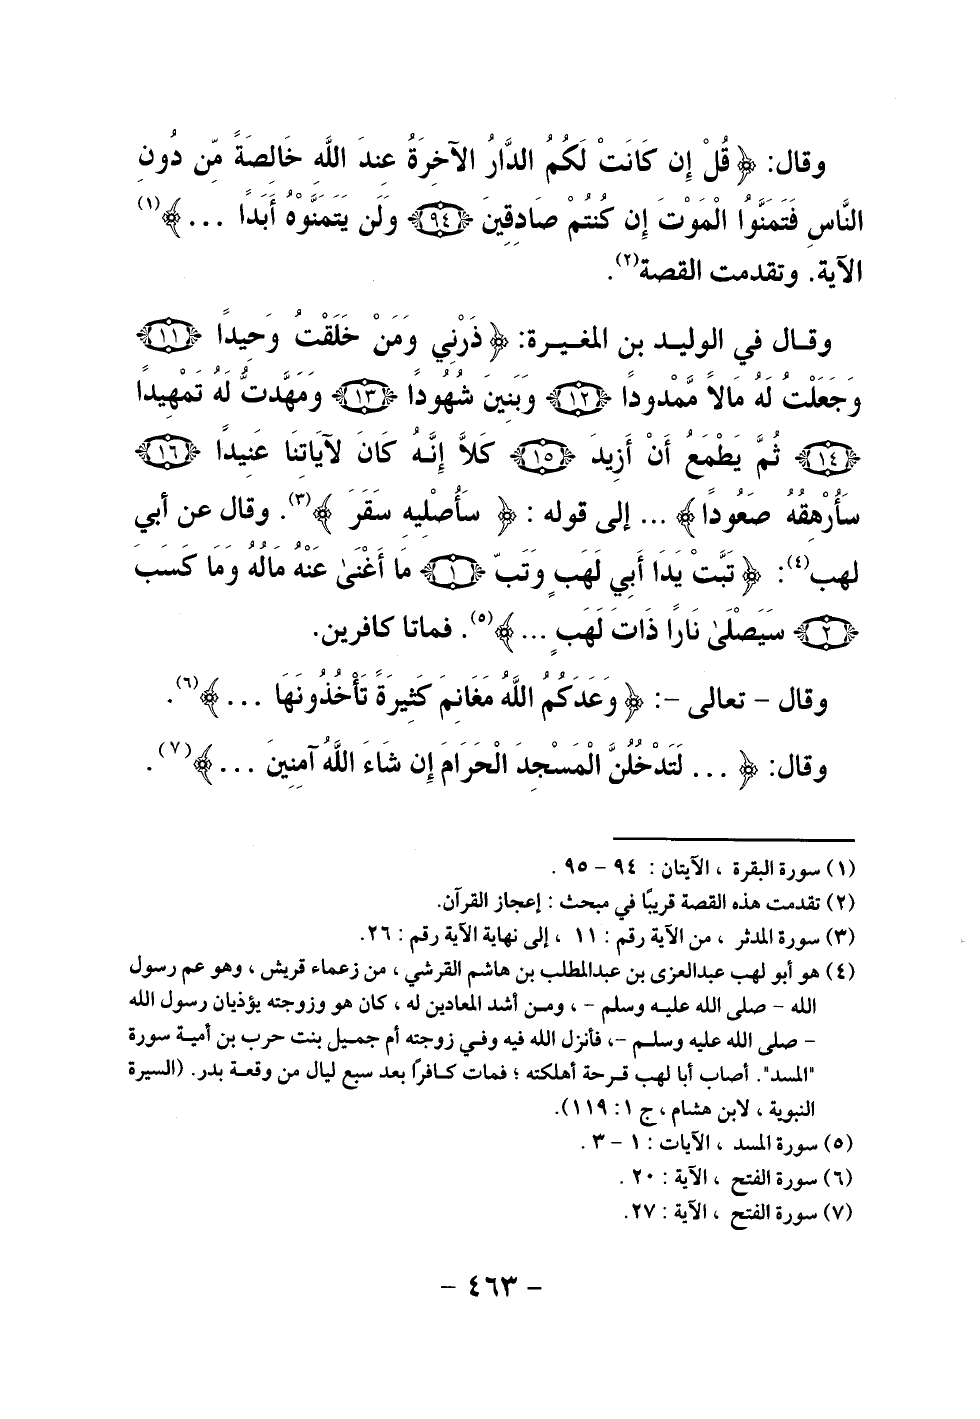 وقال: ﴿ قُلْ إِن كَانَتْ لَكُمُ الدَّارُ الآخِرَةُ عِندَ اللَّهِ خَالِصَةً مِّن دُونِ
النَّاسِ فَتَمَنَّوُا الْمَوْتَ إِن كُنتُمْ صَادِقِينَ ﴿٩٤﴾ وَلَن يَتَمَنَّوْهُ أَبَدًا ... ﴾(١)
الآية. وتقدمت القصة(٢).
وقال في الوليد بن المغيرة: ﴿ ذَرْنِي وَمَنْ خَلَقْتُ وَحِيدًا ﴿١١﴾
وَجَعَلْتُ لَهُ مَالاً مَّمْدُودًا ﴿١٢﴾ وَبَنِينَ شُهُودًا ﴿١٣﴾ وَمَهَّدتُّ لَهُ تَمْهِيدًا
﴿١٤﴾ ثُمَّ يَطْمَعُ أَنْ أَزِيدَ ﴿١٥﴾ كَلاَّ إِنَّهُ كَانَ لآيَاتِنَا عَنِيدًا ﴿١٦﴾
سَأُرْهِقُهُ صَعُودًا ﴾ ... إلى قوله : ﴿ سَأُصْلِيهِ سَقَرَ ﴾(٣). وقال عن أبي
لهب(٤): ﴿ تَبَّتْ يَدَا أَبِي لَهَبٍ وَتَبَّ ﴿١﴾ مَا أَغْنَىٰ عَنْهُ مَالُهُ وَمَا كَسَبَ
﴿٢﴾ سَيَصْلَىٰ نَارًا ذَاتَ لَهَبٍ ... ﴾(٥). فماتا كافرين.
وقال – تعالى –: ﴿ وَعَدَكُمُ اللَّهُ مَغَانِمَ كَثِيرَةً تَأْخُذُونَهَا ... ﴾(٦).
وقال: ﴿ ... لَتَدْخُلُنَّ الْمَسْجِدَ الْحَرَامَ إِن شَاءَ اللَّهُ آمِنِينَ ... ﴾(٧).
(١) سورة البقرة ، الآيتان : ٩٤ – ٩٥ .
(٢) تقدمت هذه القصة قريبًا في مبحث : إعجاز القرآن.
(٣) سورة المدثر ، من الآية رقم : ١١ ، إلى نهاية الآية رقم : ٢٦.
(٤) هو أبو لهب عبدالعزى بن عبدالمطلب بن هاشم القرشي ، من زعماء قريش ، وهو عم رسول
الله – صلى الله عليه وسلم – ، ومن أشد المعادين له ، كان هو وزوجته يؤذيان رسول الله
– صلى الله عليه وسلم –، فأنزل الله فيه وفي زوجته أم جميل بنت حرب بن أمية سورة
"المسد". أصاب أبا لهب قرحة أهلكته ؛ فمات كافرًا بعد سبع ليال من وقعة بدر. (السيرة
النبوية ، لابن هشام ، ج ١ : ١١٩).
(٥) سورة المسد ، الآيات : ١ – ٣ .
(٦) سورة الفتح ، الآية : ٢٠ .
(٧) سورة الفتح ، الآية : ٢٧.
– ٤٦٣ –